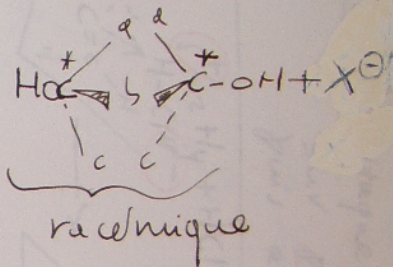 * a a *
HOC b C-OH + X⊖
c c
racémique